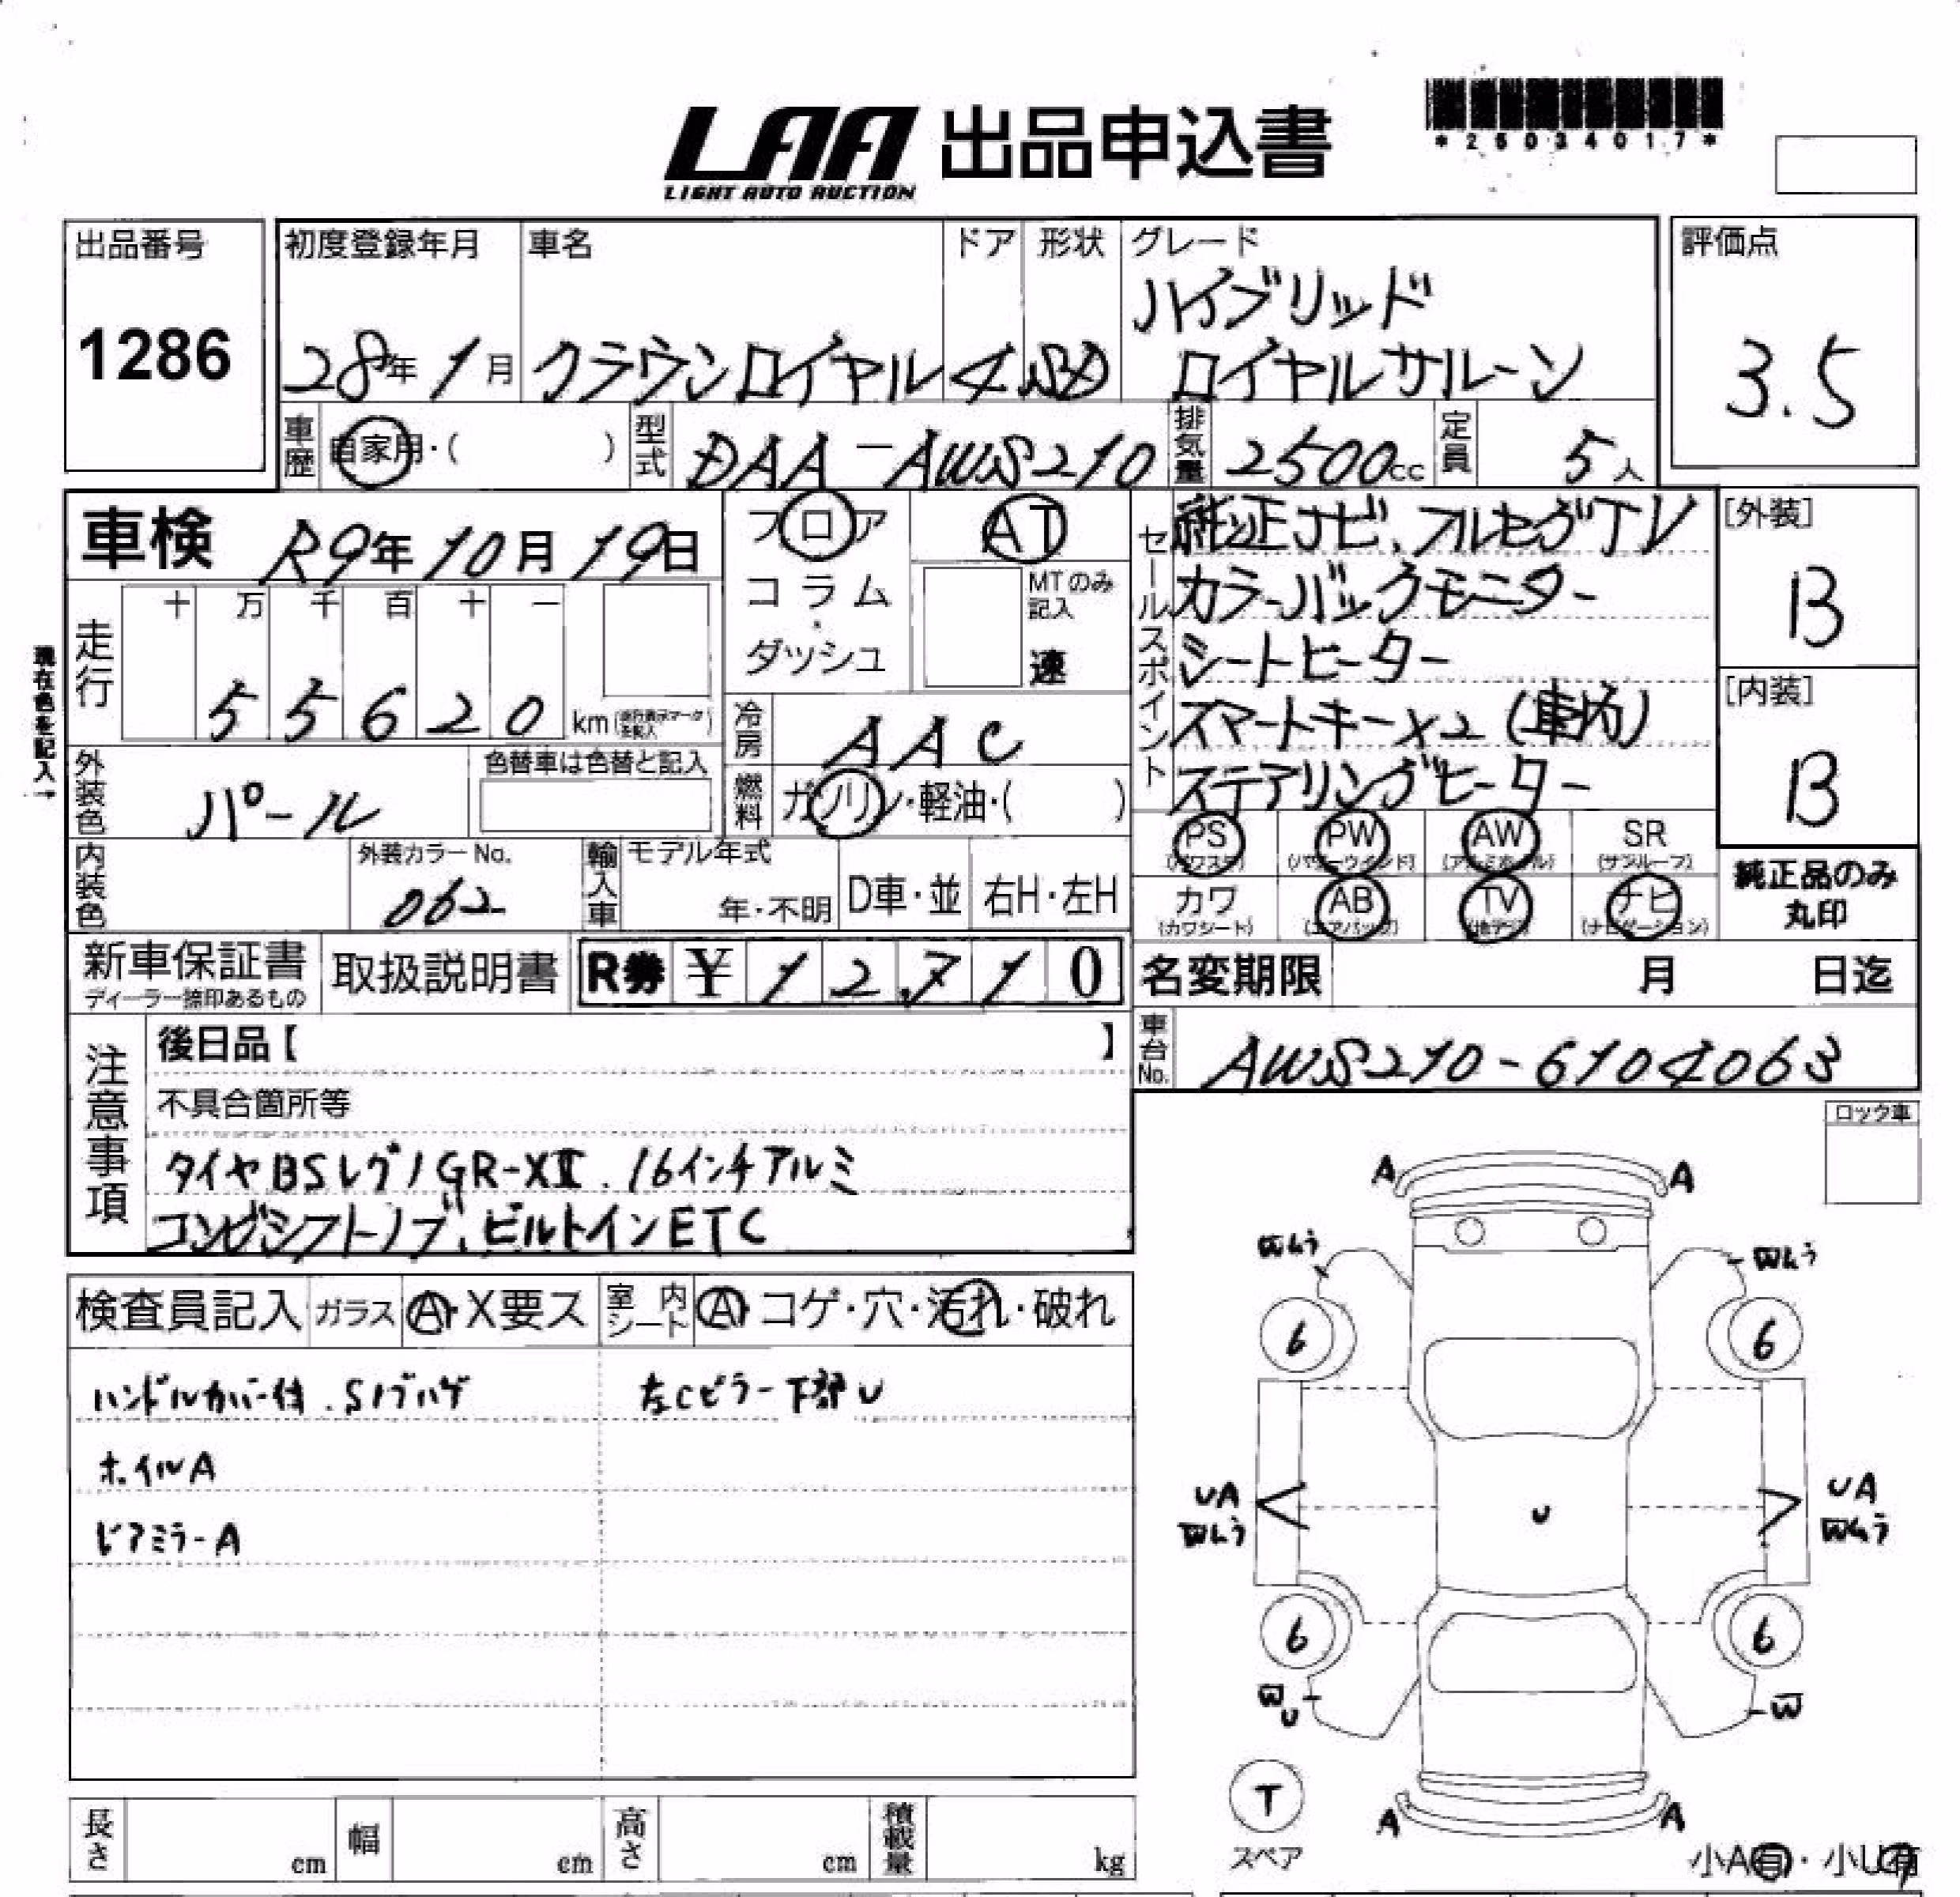 LAA 出品申込書
LIGHT AUTO AUCTION
*25034017*
出品番号
1286
初度登録年月 車名 ドア 形状 グレード
28年1月 クラウンロイヤル 4 SD ハイブリッド
ロイヤルサルーン
評価点
3.5
車歴 自家用・( ) 型式 DAA-AWS210 排気量 2500cc 定員 5人
車検 R9年10月19日
フロア
コラム
ダッシュ
AT
MTのみ記入
速
セールスポイント
純正ナビ、フルセグTV
カラーバックモニター
シートヒーター
スマートキー×2(車内)
ステアリングヒーター
[外装]
B
[内装]
B
現在色を記入→
走行 十 万 千 百 十 一
55620 km
冷房 AAC
燃料 ガソリン・軽油・( )
外装色 パール 色替車は色替と記入
内装色 外装カラーNo. 062
輸入車 モデル年式 年・不明 D車・並 右H・左H
PS (パワステ) PW (パワーウインド) AW (アルミホイル) SR (サンルーフ)
カワ (カワシート) AB (エアバッグ) TV (地デジ) ナビ (ナビゲーション)
純正品のみ
丸印
新車保証書
ディーラー捺印あるもの
取扱説明書 R券 ¥12,710
名変期限 月 日迄
車台No. AWS210-6104063
注意事項
後日品【 】
不具合箇所等
タイヤBSレグノGR-XⅡ.16インチアルミ
コンビシフトノブ、ビルトインETC
ロック車
検査員記入 ガラス A・X要ス 室内シート A・コゲ・穴・汚れ・破れ
ハンドルカバー付.Sノブハゲ 左Cピラー下部U
ホイルA
ドアミラーA
A A
Wムラ Wムラ
6 6
UA UA
Wムラ Wムラ
U
6 6
W W
U
T
スペア
A A
小A有・小U有
長さ cm 幅 cm 高さ cm 積載量 kg